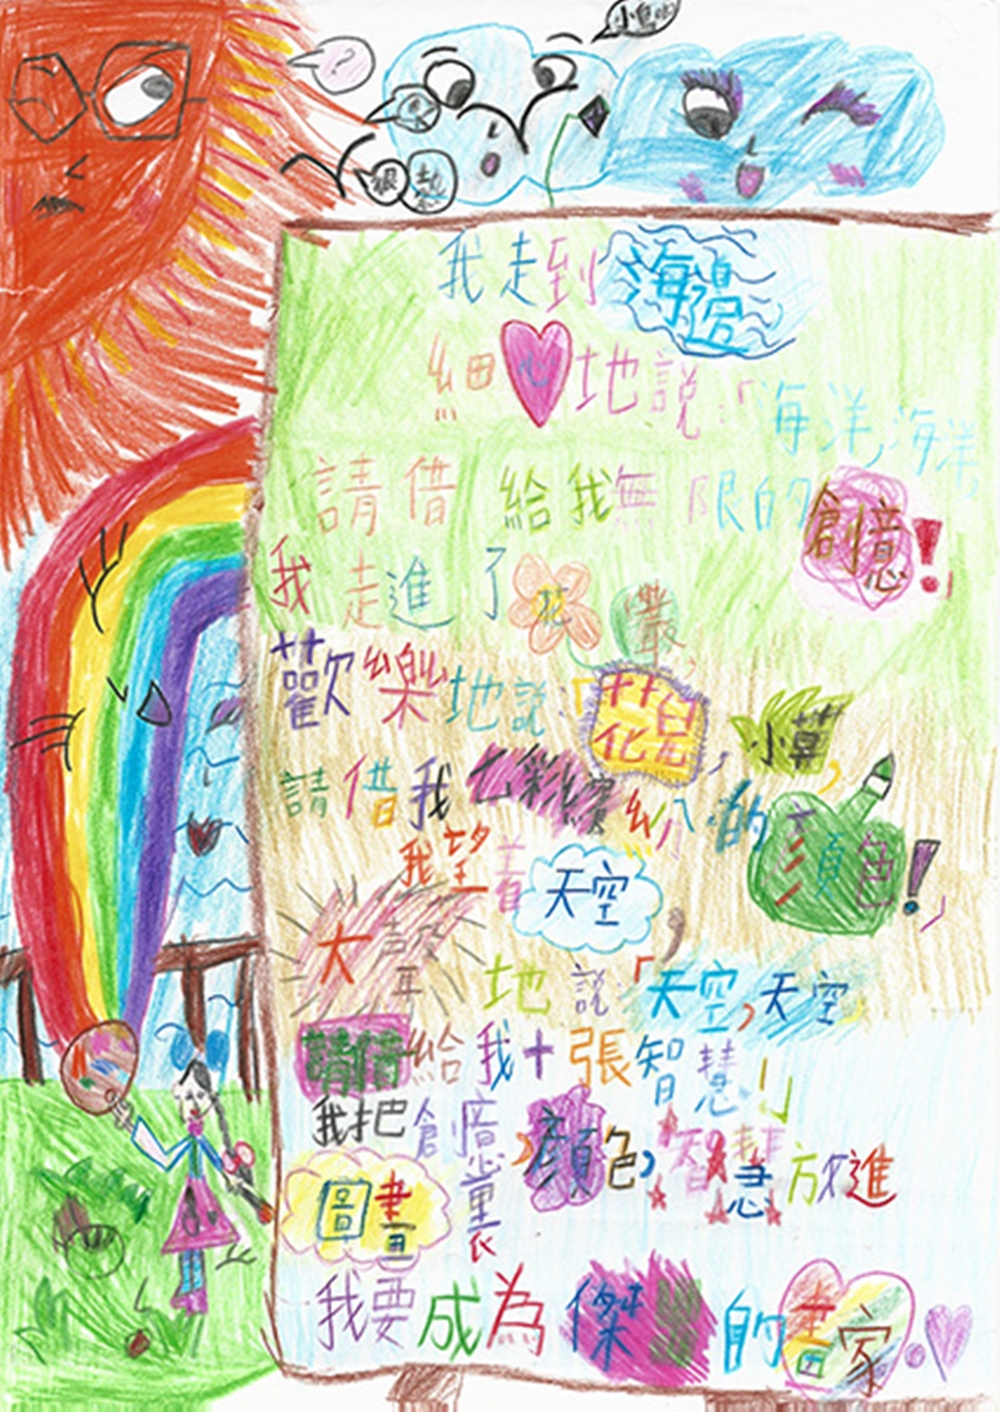 小鳥
?
很 熱
我走到海邊
細心地說：「海洋，海洋，
請借給我無限的創意！」
我走進了花叢，
歡樂地說：「花兒，小草，
請借我七彩繽紛的顏色！」
我望着天空，
大聲地說：「天空，天空
請借給我十張智慧！」
我把創意，顏色，智慧放進
圖畫裏
我要成為傑出的畫家。